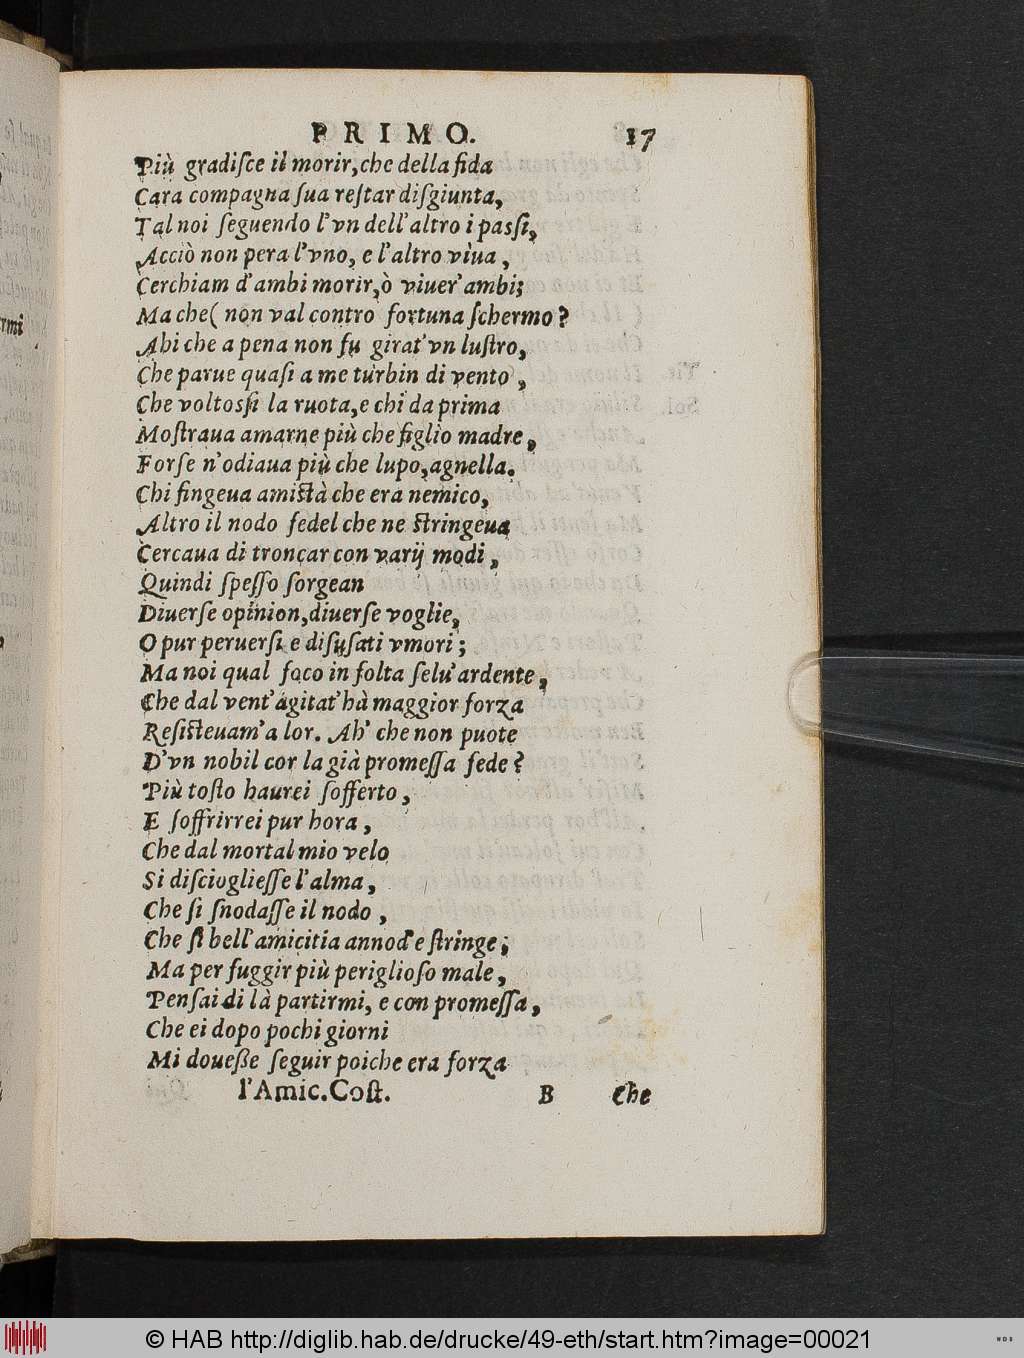 PRIMO. 17
Più gradiſce il morir, che della fida
Cara compagna ſua reſtar diſgiunta,
Tal noi ſeguendo l'vn dell'altro i paſſi,
Acciò non pera l'vno, e l'altro viua,
Cerchiam d'ambi morir, ò viuer'ambi;
Ma che (non val contro fortuna ſchermo?
Ahi che a pena non fu girat'vn luſtro,
Che parue quaſi a me turbin di vento,
Che voltoſſi la ruota, e chi da prima
Moſtraua amarne più che figlio madre,
Forſe n'odiaua più che lupo, agnella.
Chi fingeua amiſtà che era nemico,
Altro il nodo fedel che ne ſtringeua
Cercaua di troncar con varij modi,
Quindi ſpeſſo ſorgean
Diuerſe opinion, diuerſe voglie,
O pur peruerſi e diſuſati vmori;
Ma noi qual foco in folta ſelu'ardente,
Che dal vent'agitat'hà maggior forza
Reſiſteuam'a lor. Ah' che non puote
D'vn nobil cor la già promeſſa fede?
Più toſto haurei ſofferto,
E ſoffrirrei pur hora,
Che dal mortal mio velo
Si diſciogliesſe l'alma,
Che ſi ſnodaſſe il nodo,
Che ſi bell'amicitia annod'e ſtringe;
Ma per fuggir più periglioſo male,
Penſai di là partirmi, e con promeſſa,
Che ei dopo pochi giorni
Mi doueße ſeguir poiche era forza
l'Amic. Coſt. B Che
rmi
© HAB http://diglib.hab.de/drucke/49-eth/start.htm?image=00021